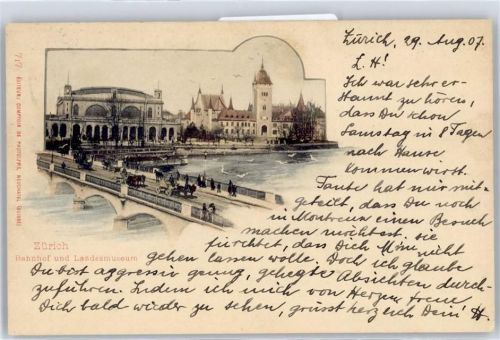 Zürich, 29. Aug. 07.
L. H!
Ich war sehr er-
staunt zu hören,
dass Du schon
Samstag in 8 Tagen
nach Hause
kommen wirst.
Tante hat mir mit-
geteilt, dass Du noch
in Montreux einen Besuch
machen möchtest. Sie
fürchtet, dass Dich Mimi nicht
gehen lassen wolle. Doch ich glaube
Du bist aggressiv genug, gehegte Absichten durch-
zuführen. Indem ich mich von Herzen freue
Dich bald wieder zu sehen, grüsst herzlich Dein H
717 EDITEUR: COMPTOIR DE PHOTOTYPIE, NEUCHATEL (SUISSE)
Zürich
Bahnhof und Landesmuseum